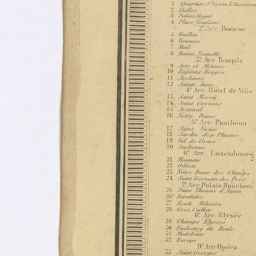 1 Quartier St Germ. l'Auxerrois
2 Halles
3 Palais Royal
4 Place Vendôme
2e Arr Bourse
5 Gaillon
6 Vivienne
7 Mail
8 Bonne Nouvelle
3e Arr Temple
9 Arts et Métiers
10 Enfants Rouges
11 Archives
12 Sainte Avoie
4e Arr Hôtel de Ville
13 Saint Merry
14 Saint Gervais
15 Arsenal
16 Notre Dame
5e Arr Panthéon
17 Saint Victor
18 Jardin des Plantes
19 Val de Grâce
20 Sorbonne
6e Arr Luxembourg
21 Monnaie
22 Odéon
23 Notre Dame des Champs
24 Saint Germain des Prés
7e Arr Palais Bourbon
25 Saint Thomas d'Aquin
26 Invalides
27 Ecole Militaire
28 Gros Caillou
8e Arr Elysée
29 Champs Elysées
30 Faubourg du Roule
31 Madeleine
32 Europe
9e Arr Opéra
33 Saint Georges